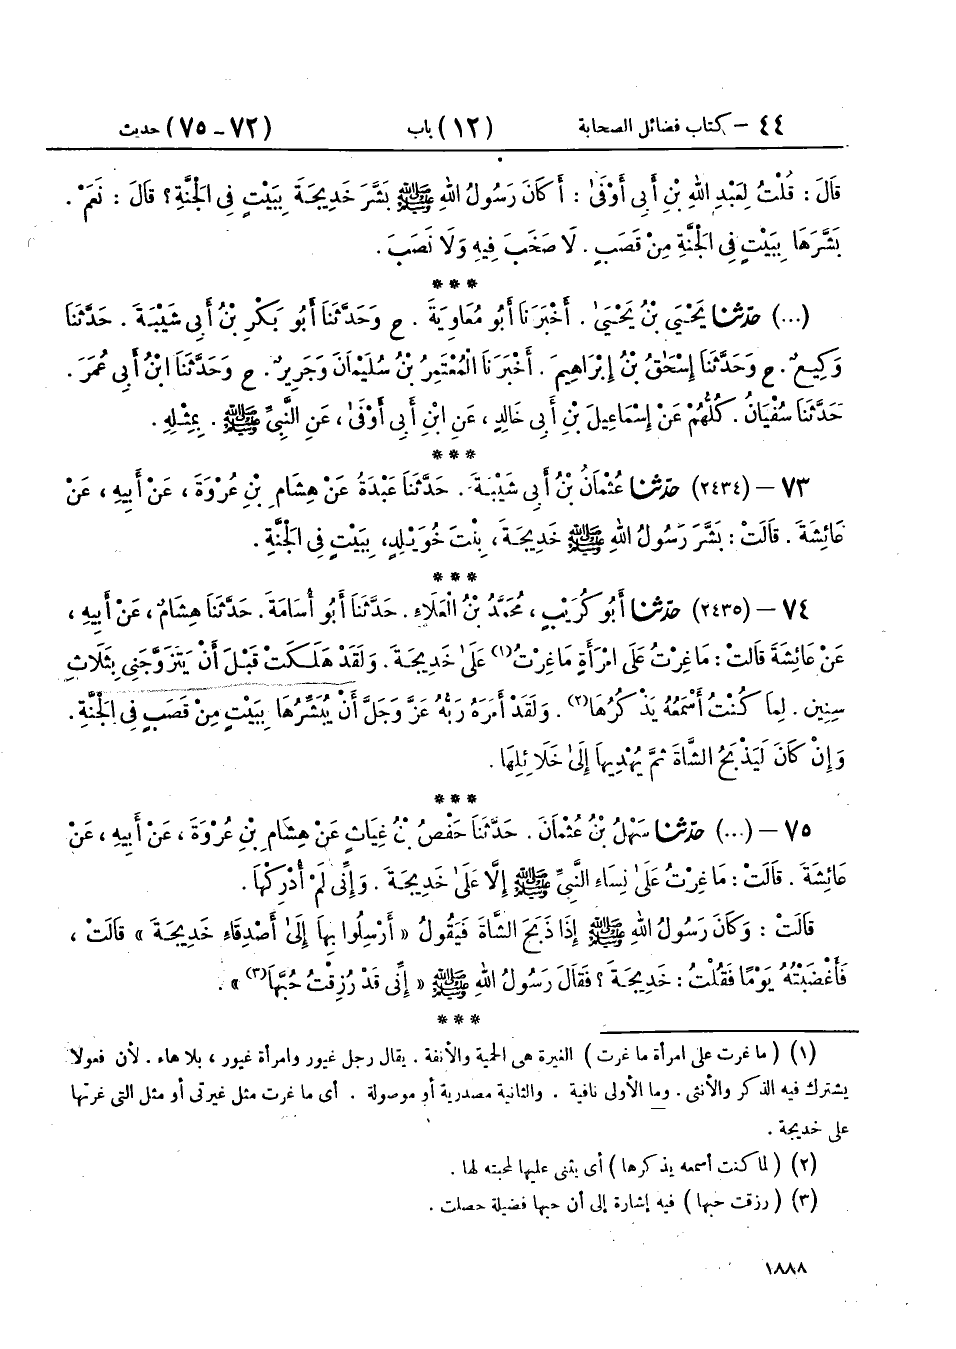 ٤٤ – كتاب فضائل الصحابة (١٢) باب (٧٢-٧٥) حديث
قَالَ : قُلْتُ لِعَبْدِ اللهِ بْنِ أَبِي أَوْفَىٰ : أَكَانَ رَسُولُ اللهِ ﷺ بَشَّرَ خَدِيجَةَ بِبَيْتٍ فِي الْجَنَّةِ ؟ قَالَ : نَعَمْ .
بَشَّرَهَا بِبَيْتٍ فِي الْجَنَّةِ مِنْ قَصَبٍ . لَا صَخَبَ فِيهِ وَلَا نَصَبَ .
***
(...) حَدَّثَنَا يَحْيَىٰ بْنُ يَحْيَىٰ . أَخْبَرَنَا أَبُو مُعَاوِيَةَ . ح وَحَدَّثَنَا أَبُو بَكْرِ بْنُ أَبِي شَيْبَةَ . حَدَّثَنَا
وَكِيعٌ . ح وَحَدَّثَنَا إِسْحَٰقُ بْنُ إِبْرَاهِيمَ . أَخْبَرَنَا الْمُعْتَمِرُ بْنُ سُلَيْمَانَ وَجَرِيرٌ . ح وَحَدَّثَنَا ابْنُ أَبِي عُمَرَ .
حَدَّثَنَا سُفْيَانُ . كُلُّهُمْ عَنْ إِسْمَاعِيلَ بْنِ أَبِي خَالِدٍ ، عَنِ ابْنِ أَبِي أَوْفَىٰ ، عَنِ النَّبِيِّ ﷺ . بِمِثْلِهِ .
***
٧٣ – (٢٤٣٤) حَدَّثَنَا عُثْمَانُ بْنُ أَبِي شَيْبَةَ . حَدَّثَنَا عَبْدَةُ عَنْ هِشَامِ بْنِ عُرْوَةَ ، عَنْ أَبِيهِ ، عَنْ
عَائِشَةَ . قَالَتْ : بَشَّرَ رَسُولُ اللهِ ﷺ خَدِيجَةَ ، بِنْتَ خُوَيْلِدٍ ، بِبَيْتٍ فِي الْجَنَّةِ .
***
٧٤ – (٢٤٣٥) حَدَّثَنَا أَبُو كُرَيْبٍ ، مُحَمَّدُ بْنُ الْعَلَاءِ . حَدَّثَنَا أَبُو أُسَامَةَ . حَدَّثَنَا هِشَامٌ ، عَنْ أَبِيهِ ،
عَنْ عَائِشَةَ قَالَتْ : مَا غِرْتُ عَلَى امْرَأَةٍ مَا غِرْتُ(١) عَلَىٰ خَدِيجَةَ . وَلَقَدْ هَلَكَتْ قَبْلَ أَنْ يَتَزَوَّجَنِي بِثَلَاثِ
سِنِينَ . لِمَا كُنْتُ أَسْمَعُهُ يَذْكُرُهَا(٢) . وَلَقَدْ أَمَرَهُ رَبُّهُ عَزَّ وَجَلَّ أَنْ يُبَشِّرَهَا بِبَيْتٍ مِنْ قَصَبٍ فِي الْجَنَّةِ .
وَإِنْ كَانَ لَيَذْبَحُ الشَّاةَ ثُمَّ يُهْدِيهَا إِلَىٰ خَلَائِلِهَا .
***
٧٥ – (...) حَدَّثَنَا سَهْلُ بْنُ عُثْمَانَ . حَدَّثَنَا حَفْصُ بْنُ غِيَاثٍ عَنْ هِشَامِ بْنِ عُرْوَةَ ، عَنْ أَبِيهِ ، عَنْ
عَائِشَةَ . قَالَتْ : مَا غِرْتُ عَلَىٰ نِسَاءِ النَّبِيِّ ﷺ إِلَّا عَلَىٰ خَدِيجَةَ . وَإِنِّي لَمْ أُدْرِكْهَا .
قَالَتْ : وَكَانَ رَسُولُ اللهِ ﷺ إِذَا ذَبَحَ الشَّاةَ فَيَقُولُ « أَرْسِلُوا بِهَا إِلَىٰ أَصْدِقَاءِ خَدِيجَةَ » قَالَتْ ،
فَأَغْضَبْتُهُ يَوْمًا فَقُلْتُ : خَدِيجَةَ ؟ فَقَالَ رَسُولُ اللهِ ﷺ « إِنِّي قَدْ رُزِقْتُ حُبَّهَا(٣) » .
***
(١) ( ما غرت على امرأة ما غرت ) الغيرة هى الحمية والأنفة . يقال رجل غيور وامرأة غيور ، بلا هاء . لأن فعولا
يشترك فيه الذكر والأنثى . وما الأولى نافية . والثانية مصدرية أو موصولة . أى ما غرت مثل غيرتى أو مثل التى غرتها
على خديجة .
(٢) ( لما كنت أسمعه يذكرها ) أى يثنى عليها لمحبته لها .
(٣) ( رزقت حبها ) فيه إشارة إلى أن حبها فضيلة حصلت .
١٨٨٨